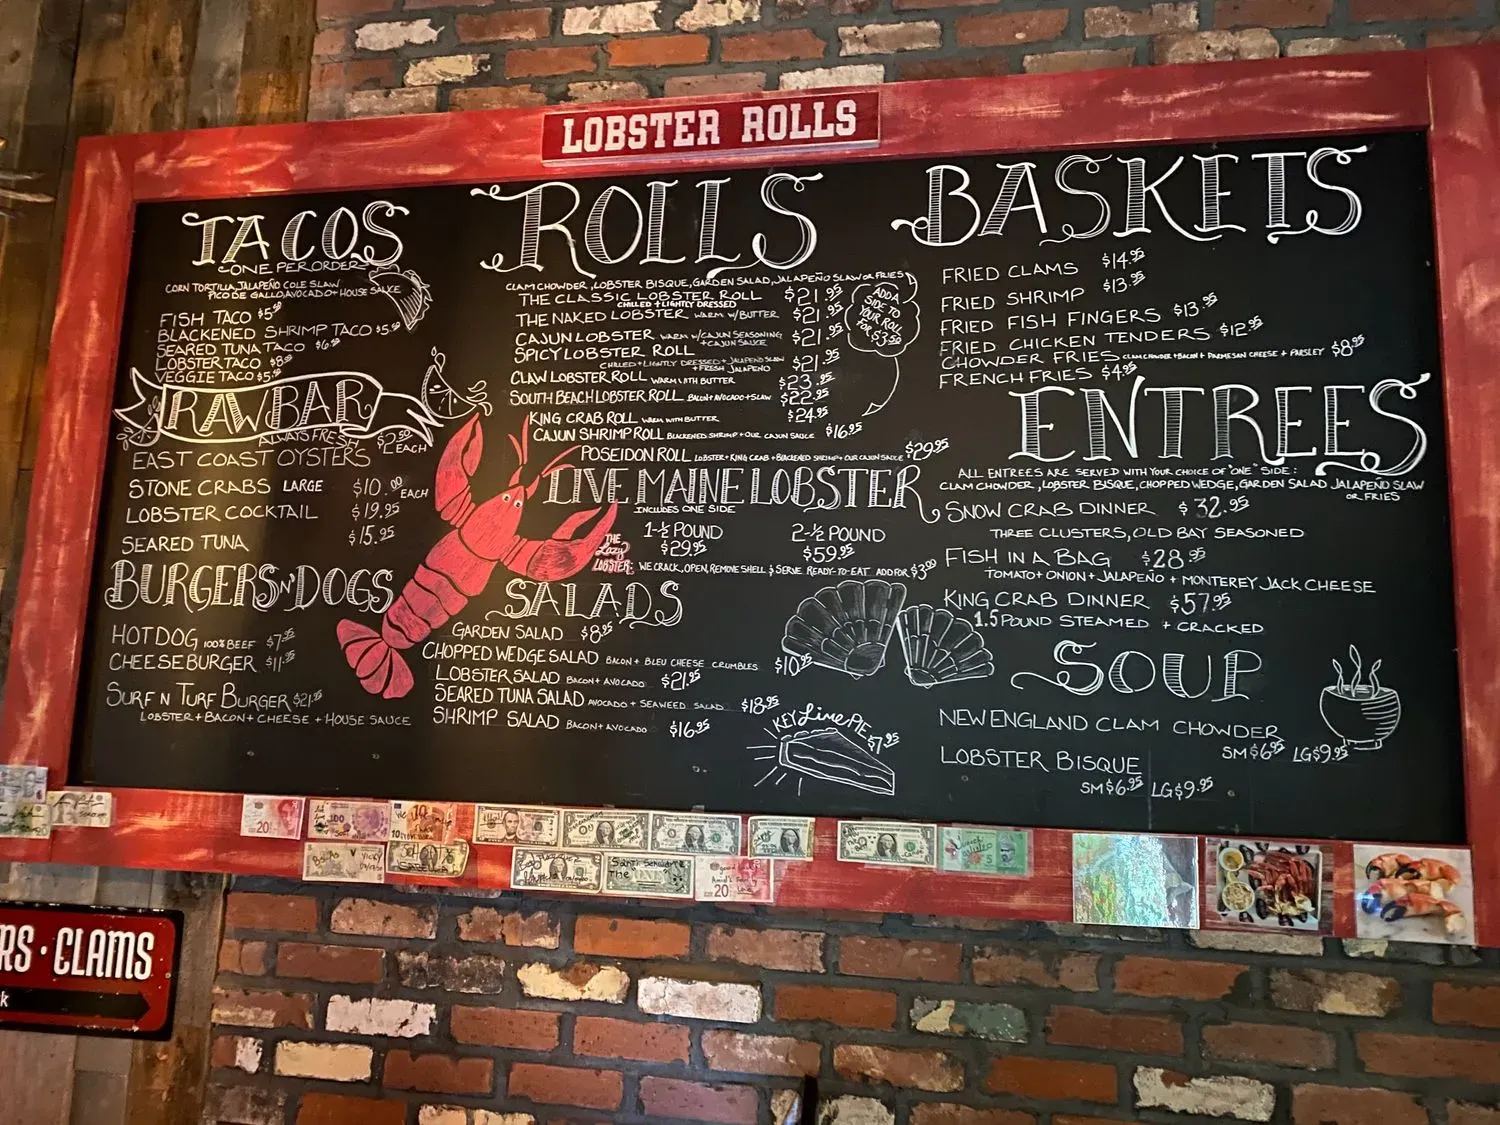 LOBSTER ROLLS
TACOS
ONE PER ORDER
CORN TORTILLA, JALAPEÑO COLE SLAW
PICO DE GALLO, AVOCADO + HOUSE SAUCE
FISH TACO $5.95
BLACKENED SHRIMP TACO $5.95
SEARED TUNA TACO $6.95
LOBSTER TACO $8.95
VEGGIE TACO $5.95
RAWBAR
ALWAYS FRESH
EAST COAST OYSTERS $2.50 EACH
STONE CRABS LARGE $10.00 EACH
LOBSTER COCKTAIL $19.95
SEARED TUNA $15.95
BURGERS N DOGS
HOT DOG 100% BEEF $7.95
CHEESEBURGER $11.95
SURF N TURF BURGER $21.95
LOBSTER + BACON + CHEESE + HOUSE SAUCE
ROLLS
CLAM CHOWDER, LOBSTER BISQUE, GARDEN SALAD, JALAPEÑO SLAW OR FRIES
ADD A
SIDE TO
YOUR ROLL
FOR $3.50
THE CLASSIC LOBSTER ROLL $21.95
CHILLED + LIGHTLY DRESSED
THE NAKED LOBSTER WARM W/BUTTER $21.95
CAJUN LOBSTER WARM W/CAJUN SEASONING $21.95
+ CAJUN SAUCE
SPICY LOBSTER ROLL $21.95
CHILLED + LIGHTLY DRESSED + JALAPENO SLAW
+ FRESH JALAPEÑO
CLAW LOBSTER ROLL WARM WITH BUTTER $23.95
SOUTH BEACH LOBSTER ROLL BACON + AVOCADO + SLAW $22.95
KING CRAB ROLL WARM WITH BUTTER $24.95
CAJUN SHRIMP ROLL BLACKENED SHRIMP + OUR CAJUN SAUCE $16.95
POSEIDON ROLL LOBSTER + KING CRAB + BLACKENED SHRIMP + OUR CAJUN SAUCE $29.95
LIVE MAINE LOBSTER
INCLUDES ONE SIDE
1-½ POUND 2-½ POUND
$29.95 $59.95
THE
Lazy
LOBSTER: WE CRACK, OPEN, REMOVE SHELL & SERVE READY-TO-EAT ADD FOR $3.00
SALADS
GARDEN SALAD $8.95
CHOPPED WEDGE SALAD BACON + BLEU CHEESE CRUMBLES $10.95
LOBSTER SALAD BACON + AVOCADO $21.95
SEARED TUNA SALAD AVOCADO + SEAWEED SALAD $18.95
SHRIMP SALAD BACON + AVOCADO $16.95
KEY Lime PIE $7.95
BASKETS
FRIED CLAMS $14.95
FRIED SHRIMP $13.95
FRIED FISH FINGERS $13.95
FRIED CHICKEN TENDERS $12.95
CHOWDER FRIES CLAM CHOWDER + BACON + PARMESAN CHEESE + PARSLEY $8.95
FRENCH FRIES $4.95
ENTREES
ALL ENTREES ARE SERVED WITH YOUR CHOICE OF "ONE" SIDE:
CLAM CHOWDER, LOBSTER BISQUE, CHOPPED WEDGE, GARDEN SALAD JALAPEÑO SLAW
OR FRIES
SNOW CRAB DINNER $32.95
THREE CLUSTERS, OLD BAY SEASONED
FISH IN A BAG $28.95
TOMATO + ONION + JALAPEÑO + MONTEREY JACK CHEESE
KING CRAB DINNER $57.95
1.5 POUND STEAMED + CRACKED
SOUP
NEW ENGLAND CLAM CHOWDER
SM $6.95 LG $9.95
LOBSTER BISQUE
SM $6.95 LG $9.95
RS · CLAMS